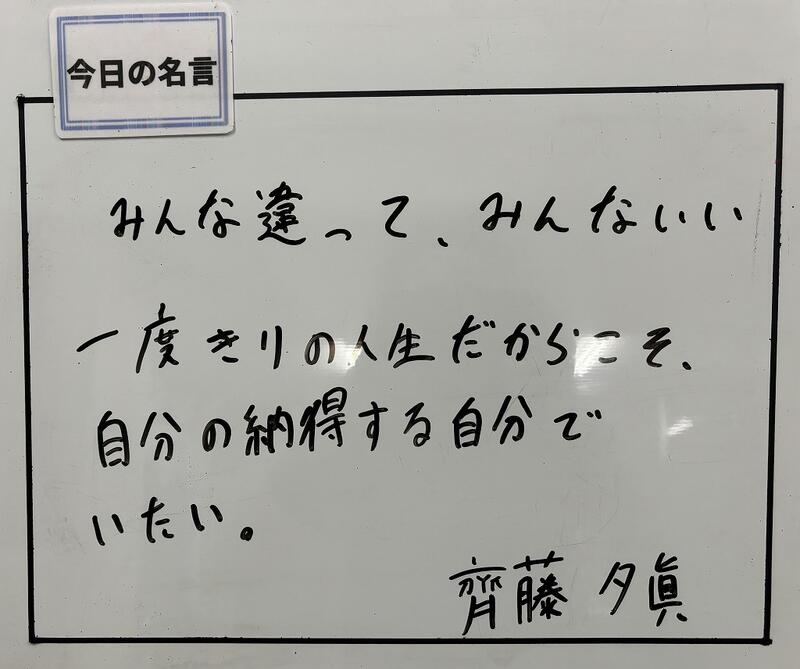 今日の名言
みんな違って、みんないい
一度きりの人生だからこそ、
自分の納得する自分で
いたい。
齊藤 夕眞